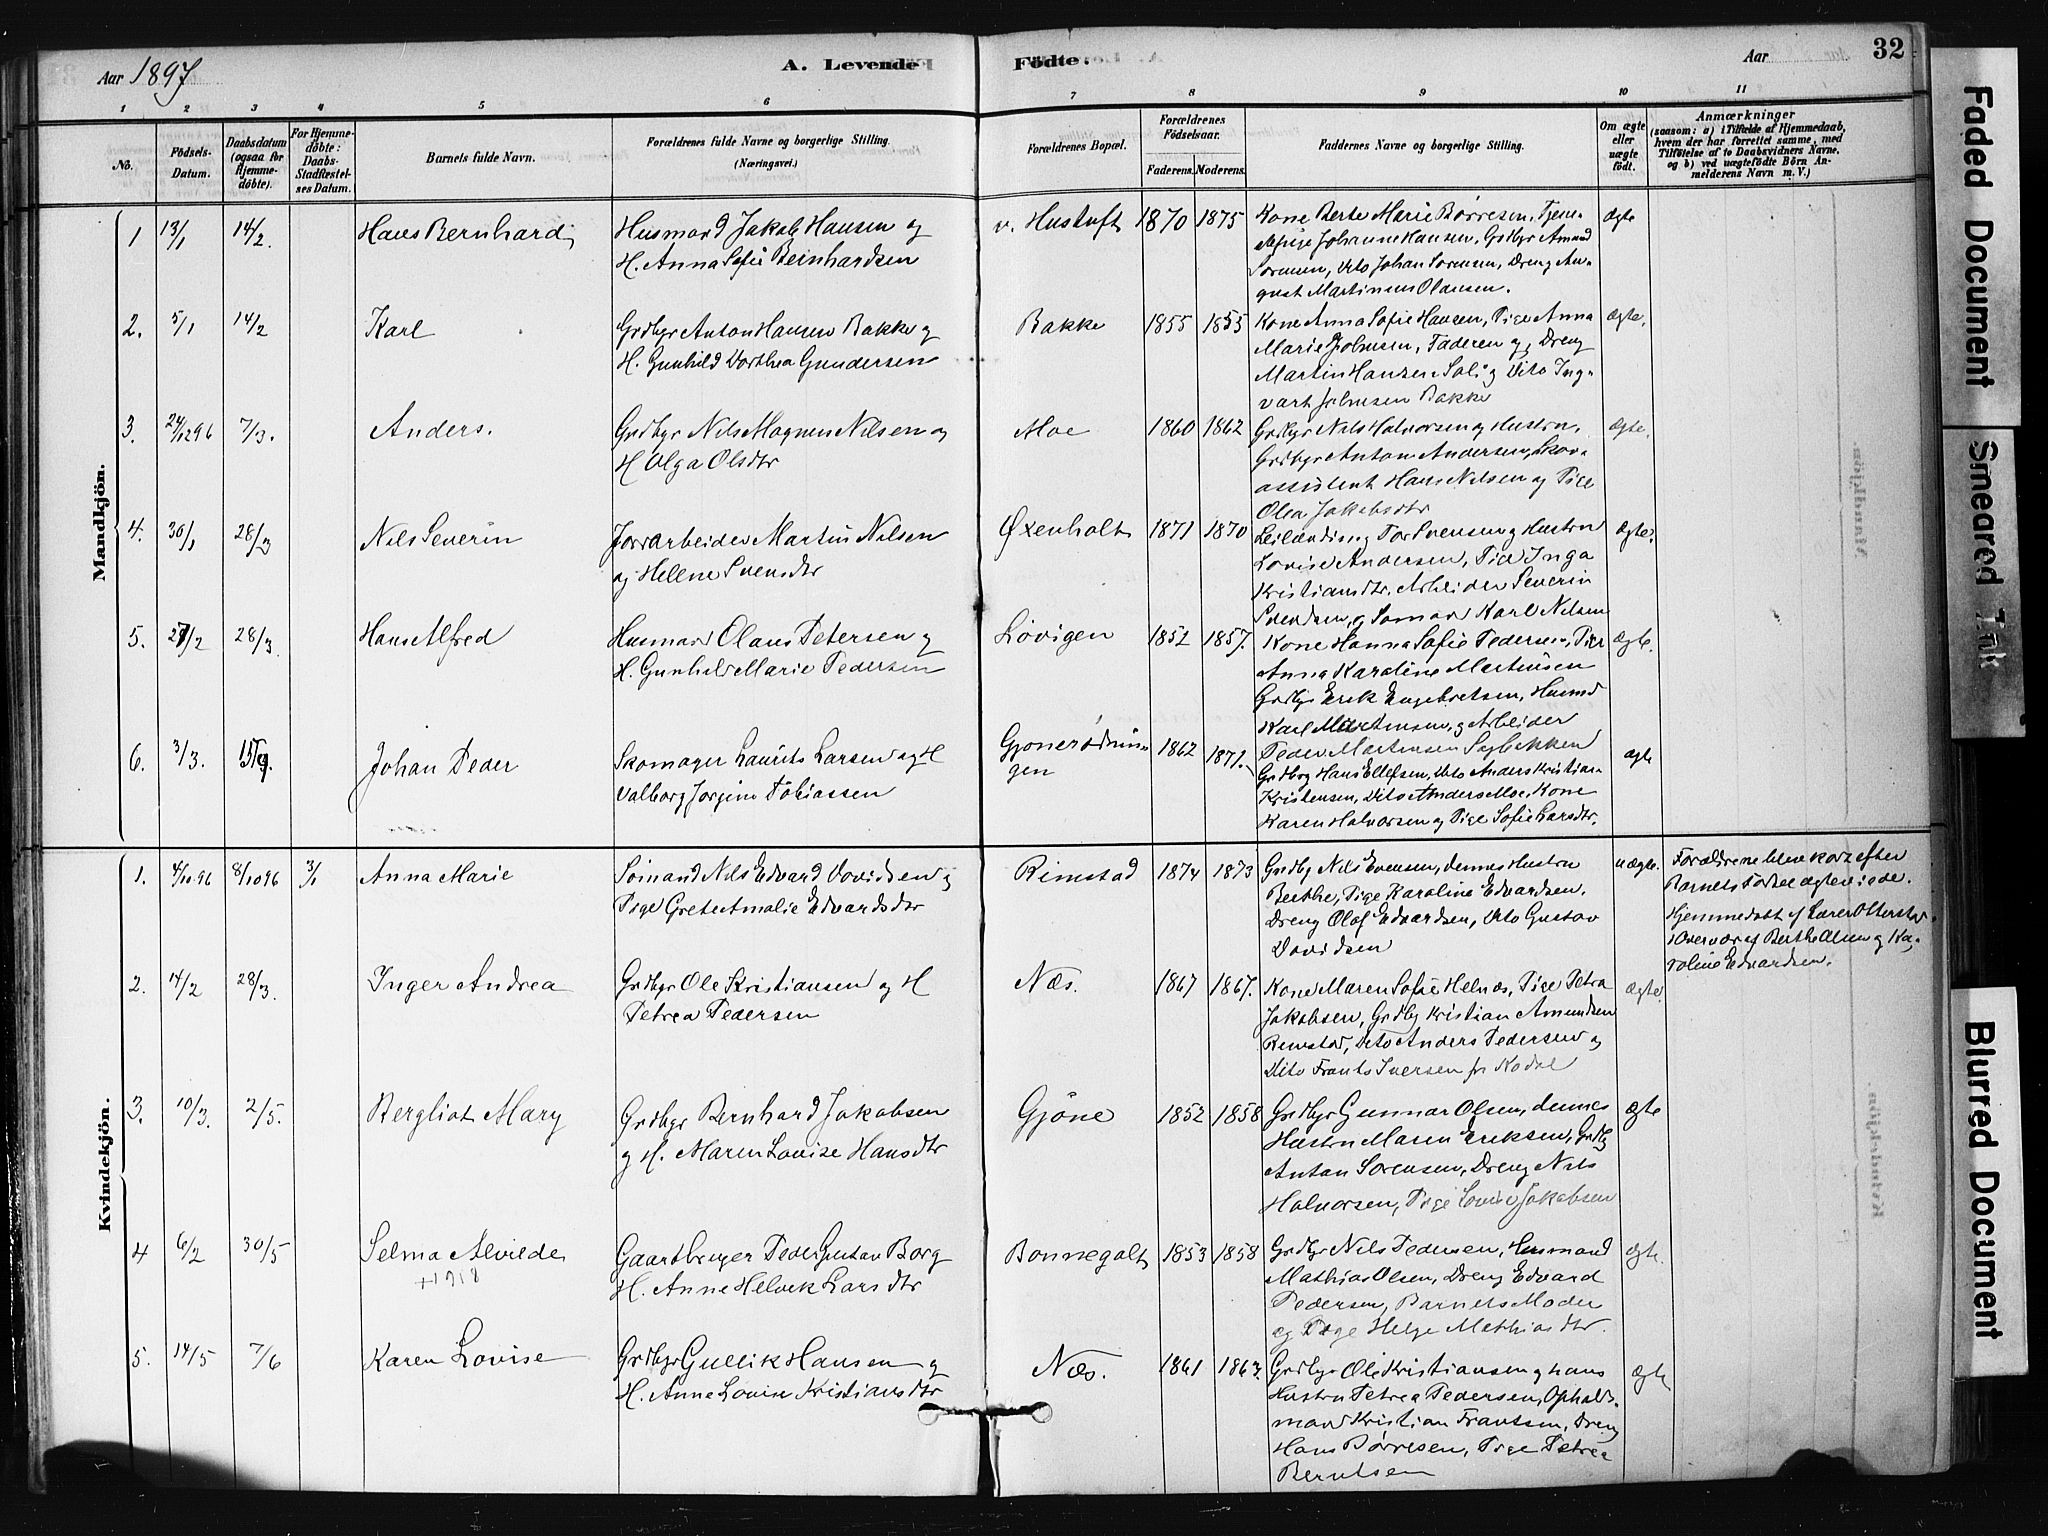 Aar 1897 A. Levende Födte. Aar 32
1 2 3 4 5 6 7 8 9 10 11
No.
Födsels-Datum.
Daabsdatum (ogsaa for Hjemme-döbte).
For Hjemme-döbte: Daabs-Stadfæstel-ses Datum.
Barnets fulde Navn.
Forældrenes fulde Navne og borgerlige Stilling. (Næringsvei.)
Forældrenes Bopæl.
Forældrenes Födselsaar.
Faderens. Moderens.
Faddernes Navne og borgerlige Stilling.
Om ægte eller uægte födt.
Anmærkninger
(saasom: a) i Tilfælde af Hjemmedaab,
hvem der har forrettet samme, med
Tilföielse af to Daabsvidners Navne,
og b) ved uægtefödte Börn An-
melderens Navn m. V.)
Mandkjön.
1 13/1 14/2. Hans Bernhard
Husmand Jakob Hansen og
H. Anna Sofie Beinhardsen
v. Hustuft 1870 1875
Kone Berte Marie Børresen, Tjene-
stepige Johanne Hansen, Grdbgr Amund
Sorensen, Dito Johan Sorensen, Dreng Au-
gust Martinius Olausen.
ægte
2. 5/1 14/2 Karl
Grdbgr Anton Hansen Bakke og
H. Gunhild Dorthea Gundersen
Bakke 1855 1855
Kone Anna Sofie Hansen, Pige Anna
Marie Johnsen, Faderen og Dreng
Martin Hansen Soli og Dito Ing-
vart Johnsen Bakke
ægte.
3. 24/12 96 7/3. Anders.
Grdbgr Nils Magnus Nilsen og
H Olga Olsdtr
Moe 1860 1862
Grdbgr Nils Halvorsen og Hustru,
Grdbgr Anton Andersen, Skov-
assistent Hans Nilsen og Pige
Olea Jakobsdtr
ægte.
4. 30/1 28/3 Nils Severin
Jordarbeider Martin Nilsen
og Helene Svensdtr
Øxenholt 1871 1870
Leilænding Tor Svensen og Hustru
Lovise Andersen, Pige Inga
Kristiansdtr. Arbeider Severin
Svendsen, og Sømand Karl Nilsen
ægte.
5. 27/2 28/3. Hans Alfred
Husmand Olaus Petersen og
H. Gunhild Marie Pedersen
Løvigen 1852 1857.
Kone Hanna Sofie Pedersen, Pige
Anna Karoline Martinsen
Grdbgr Erik Engebretsen, Husmd
Karl Martinsen, og Arbeider
Peder Martinsen Sagbakken
ægte.
6. 3/3. Johan Peder
Skomager Laurits Larsen og H
Valborg Jorgine Tobiassen
Gjonerødnin-
gen 1862 1871.
Grdbgr Hans Ellefsen, Dito Anders Kristian
Kristensen, Dito Anders Moe, Kone
Karen Halvorsen og Pige Sofie Larsdtr.
ægte
Kvindekjön.
1. 4/10 96 8/10 96 3/1 Anna Marie
Sömand Nils Edvard Davidsen og
Pige Grete Amalie Edvardsdtr
Rimstad 1874 1873
Grdbg Nils Evensen, dennes Hustru
Berthe, Pige Karoline Edvardsen.
Dreng Olaf Edvardsen, Dito Gustav
Davidsen
uægte.
Forældrene bleve kort efter
Barnets Fødsel ægteviede.
Hjemmedøbt af Lærer Otterstad
i Overvær af Berthe Olsen og Ka-
roline Edvardsen.
2. 14/2 28/3. Inger Andrea
Grdbgr Ole Kristiansen og H
Petrea Pedersen
Næs. 1867 1867.
Kone Maren Sofie Helnæs, Pige Petra
Jakobsen, Grdbg Kristian Amundsen
Rimstad, Dito Anders Pedersen og
Dito Frants Iversen fr Kodal
ægte.
3. 10/3. 2/5. Bergliot Mary
Grdbgr Bernhard Jakobsen
og H. Maren Lovise Hansdtr
Gjöne 1852 1858
Grdbgr Gunnar Olsen, dennes
Hustru Maren Eriksen, Grdbg
Anton Sorensen, Dreng Nils
Halvorsen, Pige Lovise Jakobsen
ægte
4 6/2 30/5 Selma Alvilde
+1918
Gaardbruger Peder Gustav Borg
H. Anne Helvek Larsdtr
Bonnegolt 1853 1858
Grdbgr Nils Pedersen, Husmand
Mathias Olsen, Dreng Edvard
Pedersen, Barnets Moder
og Pige Helga Mathiasdtr.
ægte.
5. 14/5 7/6 Karen Lovise
Grdbgr Gullik Hansen og
H. Anne Lovise Kristiansdtr
Næs. 1861 1863.
Grdbgr Ole Kristiansen og hans
Hustru Petrea Pedersen, Opholds-
mand Kristian Frantsen, Dreng
Hans Børresen, Pige Petrea
Berntsen
ægte
Faded Document
Smeared Ink
Blurred Document